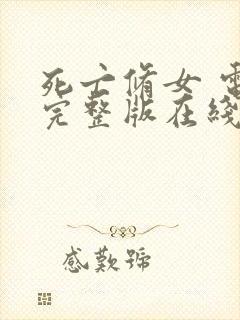 死亡脩女 電
完整版在綫
感歎號